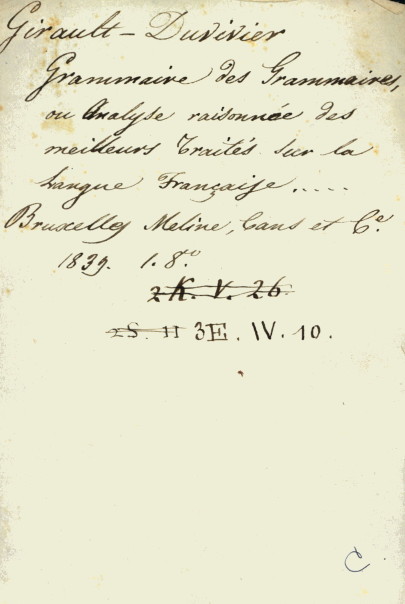 Girault-Duvivier
Grammaire des Grammaires,
ou Analyse raisonnée des
meilleurs Traités sur la
Langue Française.....
Bruxelles Meline, Cans et Cᵉ.
1839. 1. 8.º
2 K. V. 26.
2 S. II 3E. IV. 10.
C